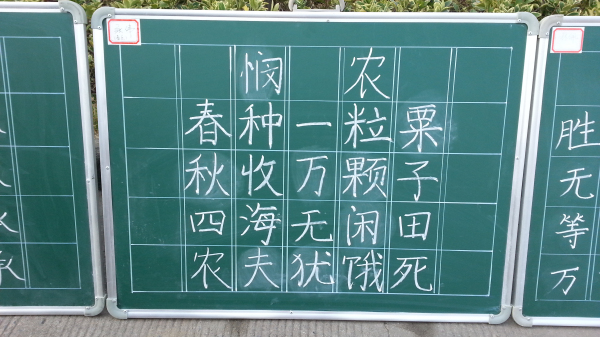 悯农
春种一粒粟
秋收万颗子
四海无闲田
农夫犹饿死
胜
无
等
万